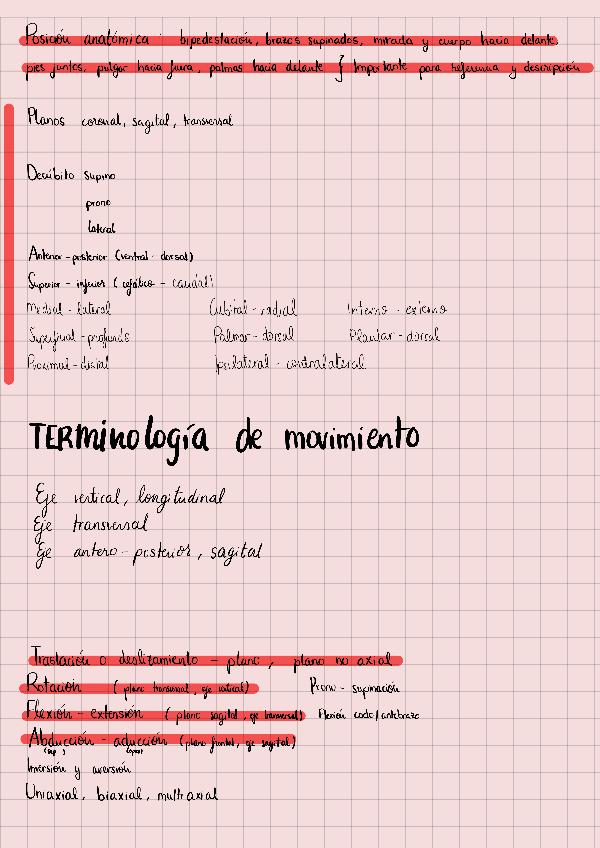 Posición anatómica : bipedestación, brazos supinados, mirada y cuerpo hacia delante
pies juntos, pulgar hacia fuera, palmas hacia delante } Importante para referencia y descripción
Planos coronal, sagital, transversal
Decúbito supino
prono
lateral
Anterior - posterior (ventral - dorsal)
Superior - inferior (cefálico - caudal)
Medial - lateral Cubital - radial Interno - externo
Superficial - profundo Palmar - dorsal Plantar - dorsal
Proximal - distal Ipsilateral - contralateral
TERminología de movimiento
Eje vertical, longitudinal
Eje transversal
Eje antero - posterior, sagital
Traslación o deslizamiento - plano, plano no axial
Rotación (plano transversal, eje vertical) Prono - supinación
Flexión - extensión (plano sagital, eje transversal) Flexión codo/antebrazo
Abducción - aducción (plano frontal, eje sagital)
(sep.)
Inversión y eversión
Uniaxial, biaxial, multiaxial